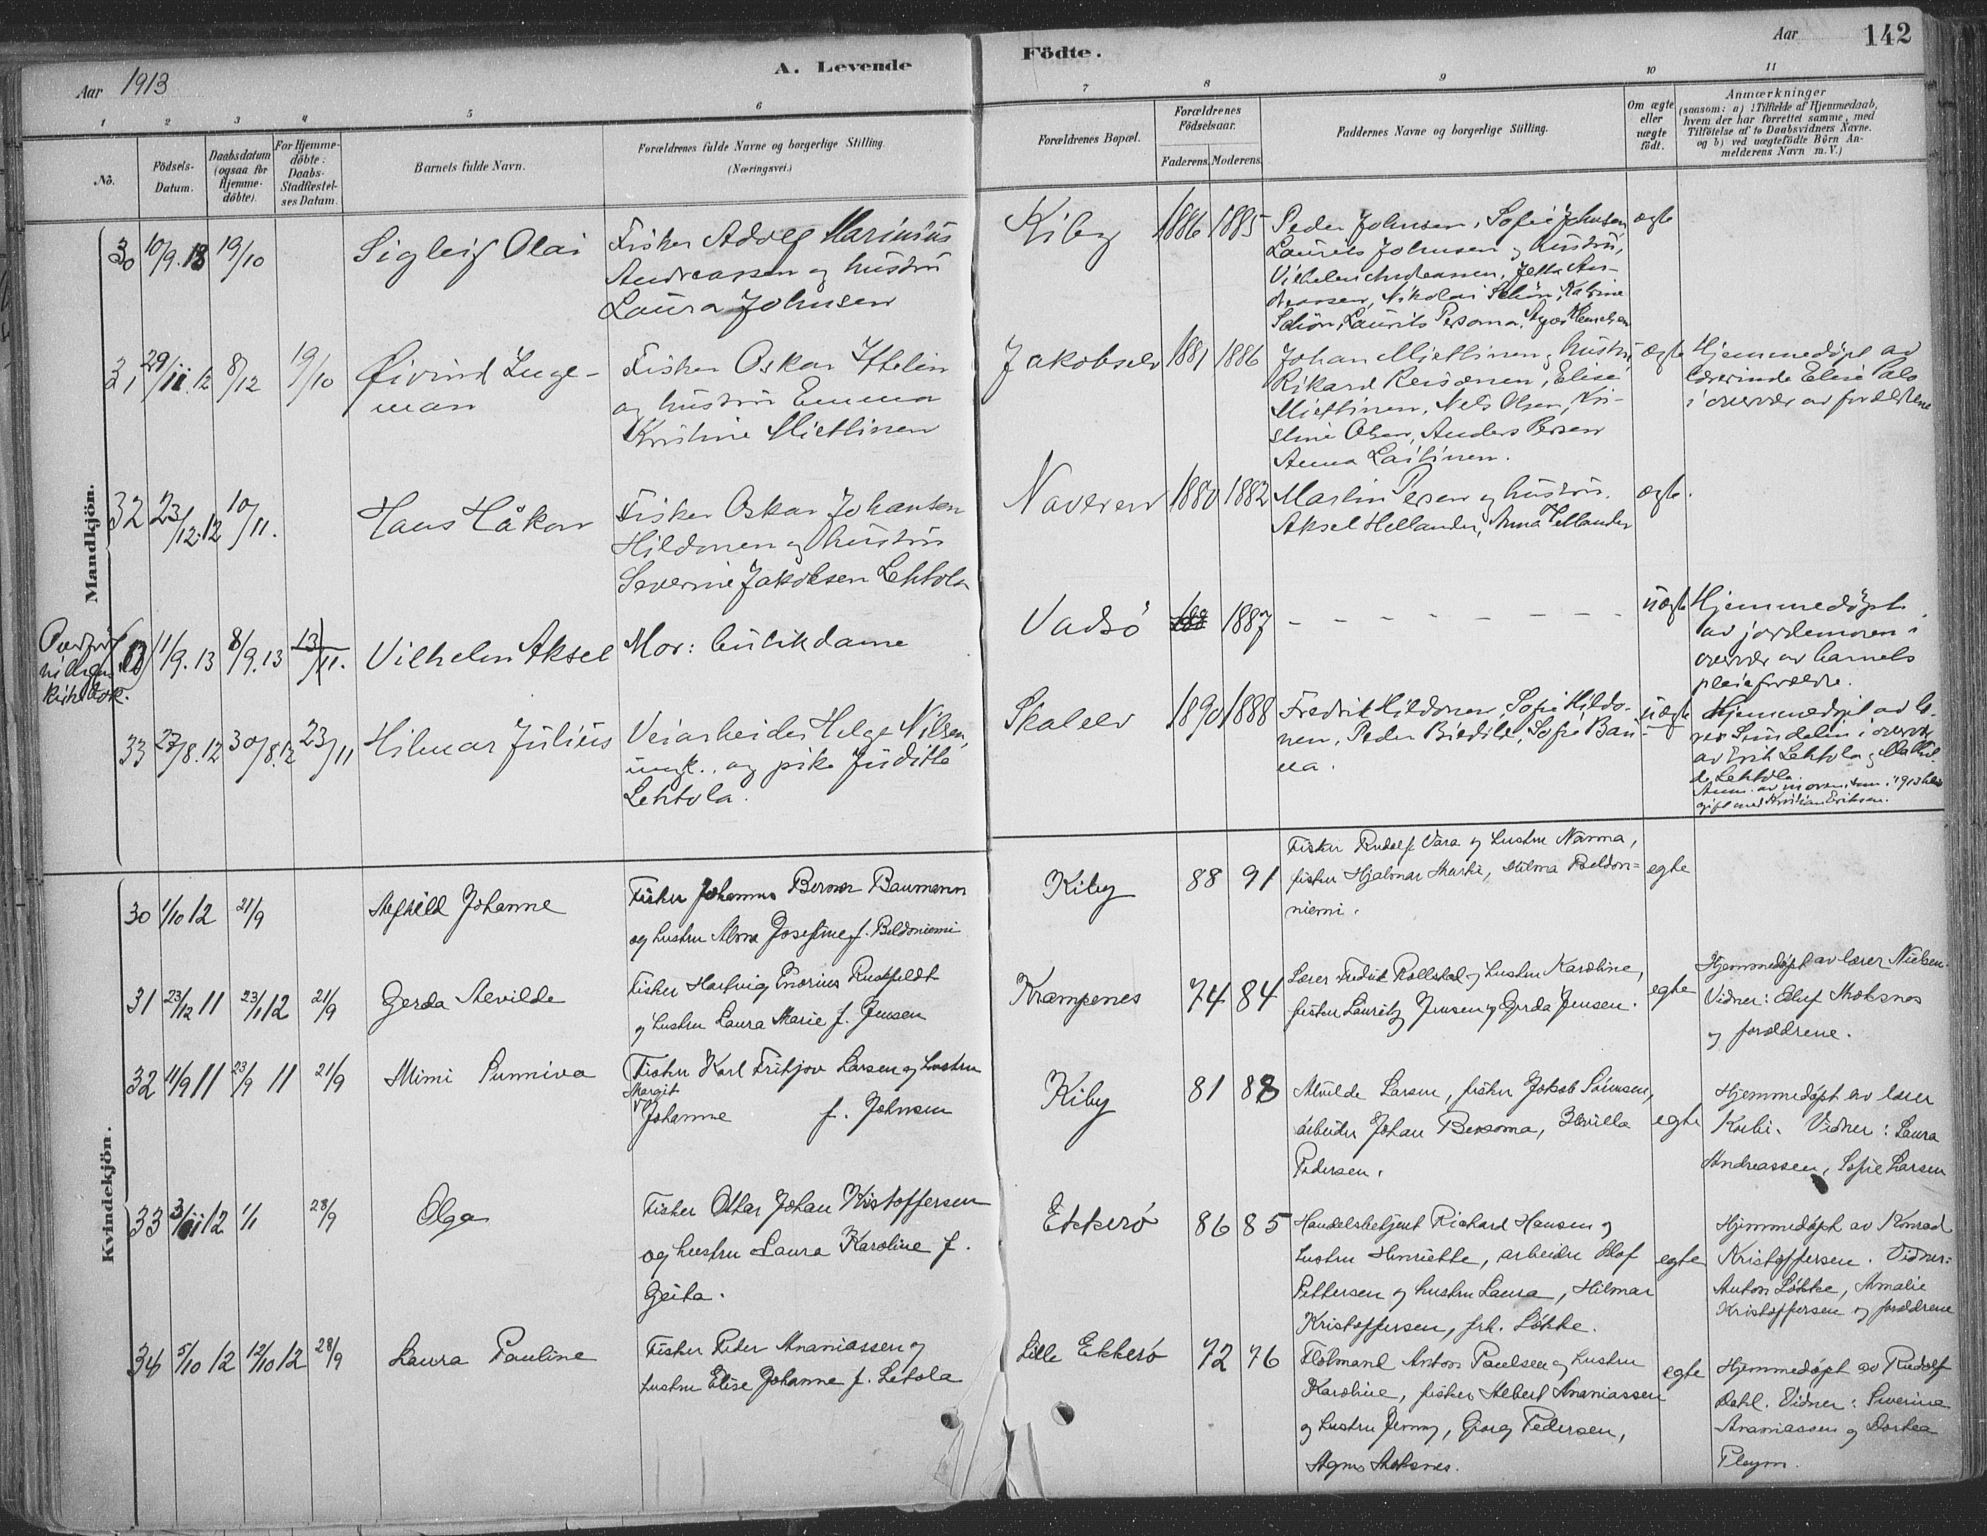 Aar 1913
A. Levende
Födte.
Aar
142
1 2 3 4 5 6 7 8 9 10 11
No.
Födsels-
Datum.
Daabsdatum
(ogsaa for
Hjemme-
döbte).
For Hjemme-
döbte:
Daabs-
Stadfæstel-
ses Datum.
Barnets fulde Navn.
Forældrenes fulde Navne og borgerlige Stilling.
(Næringsvei.)
Forældrenes Bopæl.
Forældrenes
Födselsaar.
Faderens. Moderens.
Faddernes Navne og borgerlige Stilling.
Om ægte
eller
uægte
födt.
Anmærkninger
(saasom: a) i Tilfælde af Hjemmedaab,
hvem der har forrettet samme, med
Tilföielse af to Daabsvidners Navne.
og b) ved uægtefödte Börn An-
melderens Navn m. V.)
Mandkjön.
30 10/9.13 19/10
Sigleif Olai
Fisker Adolf Marinius
Andreassen og hustru
Laura Johnsen
Kiby
1886 1885
Peder Johnsen, Sofie Johnsen
Laurits Johnsen og hustru,
Vilhelm Andreassen, Jetta An-
dreassen, Nikolai Schön, Katrine
Schön, Laurits Persoma,
ægte
31 29/11.12 8/12 19/10
Øivind Inge-
man
Fisker Oskar Ittelin
og hustru Emma
Kristine Miettinen
Jakobselv
1881 1886
Johan Miettinen og hustru
Rikard Reisænen, Elise
Miettinen, Nels Olsen, Kri-
stine Olsen, Anders Persen
Anna Laitinen.
ægte
Hjemmedøpt av
lærerinde Elise Palo
i overvær av forældrene
32 23/12.12 10/11.
Hans Håkon
Fisker Oskar Johansen
Hildonen og hustru
Severine Jakobsen Lehtola
Naveren
1880 1882
Martin Persen og hustru.
Aksel Hellander, Anna Hellander
ægte.
kirkebok.
11/9.13 8/9.13 13/11.
Vilhelm Aksel
Mor: butikdame
Vadsö
1887
uægte
Hjemmedøpt
av jordemoren i
overvær av barnets
pleieforældre.
33 27/8.12 30/8.12 23/11
Hilmar Julius
Veiarbeider Helge Nilsen,
ungk. og pike Juditte
Lehtola.
Skalelv
1890 1888
Fredrik Hildonen, Sofie Hildo-
nen, Peder Biedilæ, Sofie Bau-
na.
uægte
Hjemmedøpt av læ-
rer Sundelin i overvær
av Erik Lehtola og Mathil-
de Lehtola.
Anm. av moren som i 1913 blev
gift med Kristian Eriksen.
Kvindekjön.
30 1/10 12 21/9
Alfhild Johanne
Fisker Johannes Berner Baumann
og hustru Alma Josefine f. Beldoniemi
Kiby
88 91
Fisker Rudolf Vara og hustru Nanna,
fisker Hjalmar Marki, Hilma Beldon=
niemi.
egte
31 23/12 11 23/1 12 21/9
Gerda Alvilde
Fisker Hartvig Enorius Ruchfeldt
og hustru Laura Marie f. Jensen
Krampenes
74 84
Lærer Fredrik Rollstad og hustru Karoline,
fisker Lauritz Jensen og Gerda Jensen.
egte
Hjemmedøpt av lærer Nielsen.
Vidner: Eluf Moksnes
og forældrene.
32 11/9 11 23/9 11 21/9
Mimi Sunniva
Fisker Karl Fritjov Larsen og hustru
Margit
Johanne f. Johnsen
Kiby
81 88
Alvilde Larsen, fisker Jakob Sörensen,
arbeider Johan Bersoma,
Pedersen.
egte
Hjemmedøpt av lærer
Korbi. Vidner: Laura
Andreassen, Sofie Larsen
33 3/11 12 1/1 28/9
Olga
Fisker Ottar Johan Kristoffersen
og hustru Laura Karoline f.
Geita.
Ekkerö
86 85
Handelsbetjent Richard Hansen og
hustru Henriette, arbeider Olaf
Pettersen og hustru Laura, Hilmar
Kristoffersen, frk. Løkke.
egte
Hjemmedøpt av Konrad
Kristoffersen. Vidner:
Anton Løkke, Amalie
Kristoffersen og forældrene
34 5/10 12 12/10 12 28/9
Laura Pauline
Fisker Peder Ananiassen og
hustru Elise Johanne f. Letola
Lille Ekkerö
72 76
Flötmand Anton Paulsen og hustru
Karoline, fisker Albert Ananiassen
og hustru Jenny, Georg Pedersen,
Agnes Moksnes.
egte
Hjemmedøpt av Rudolf
Dahl. Vidner: Severine
Ananiassen og Dortea
Pleym.